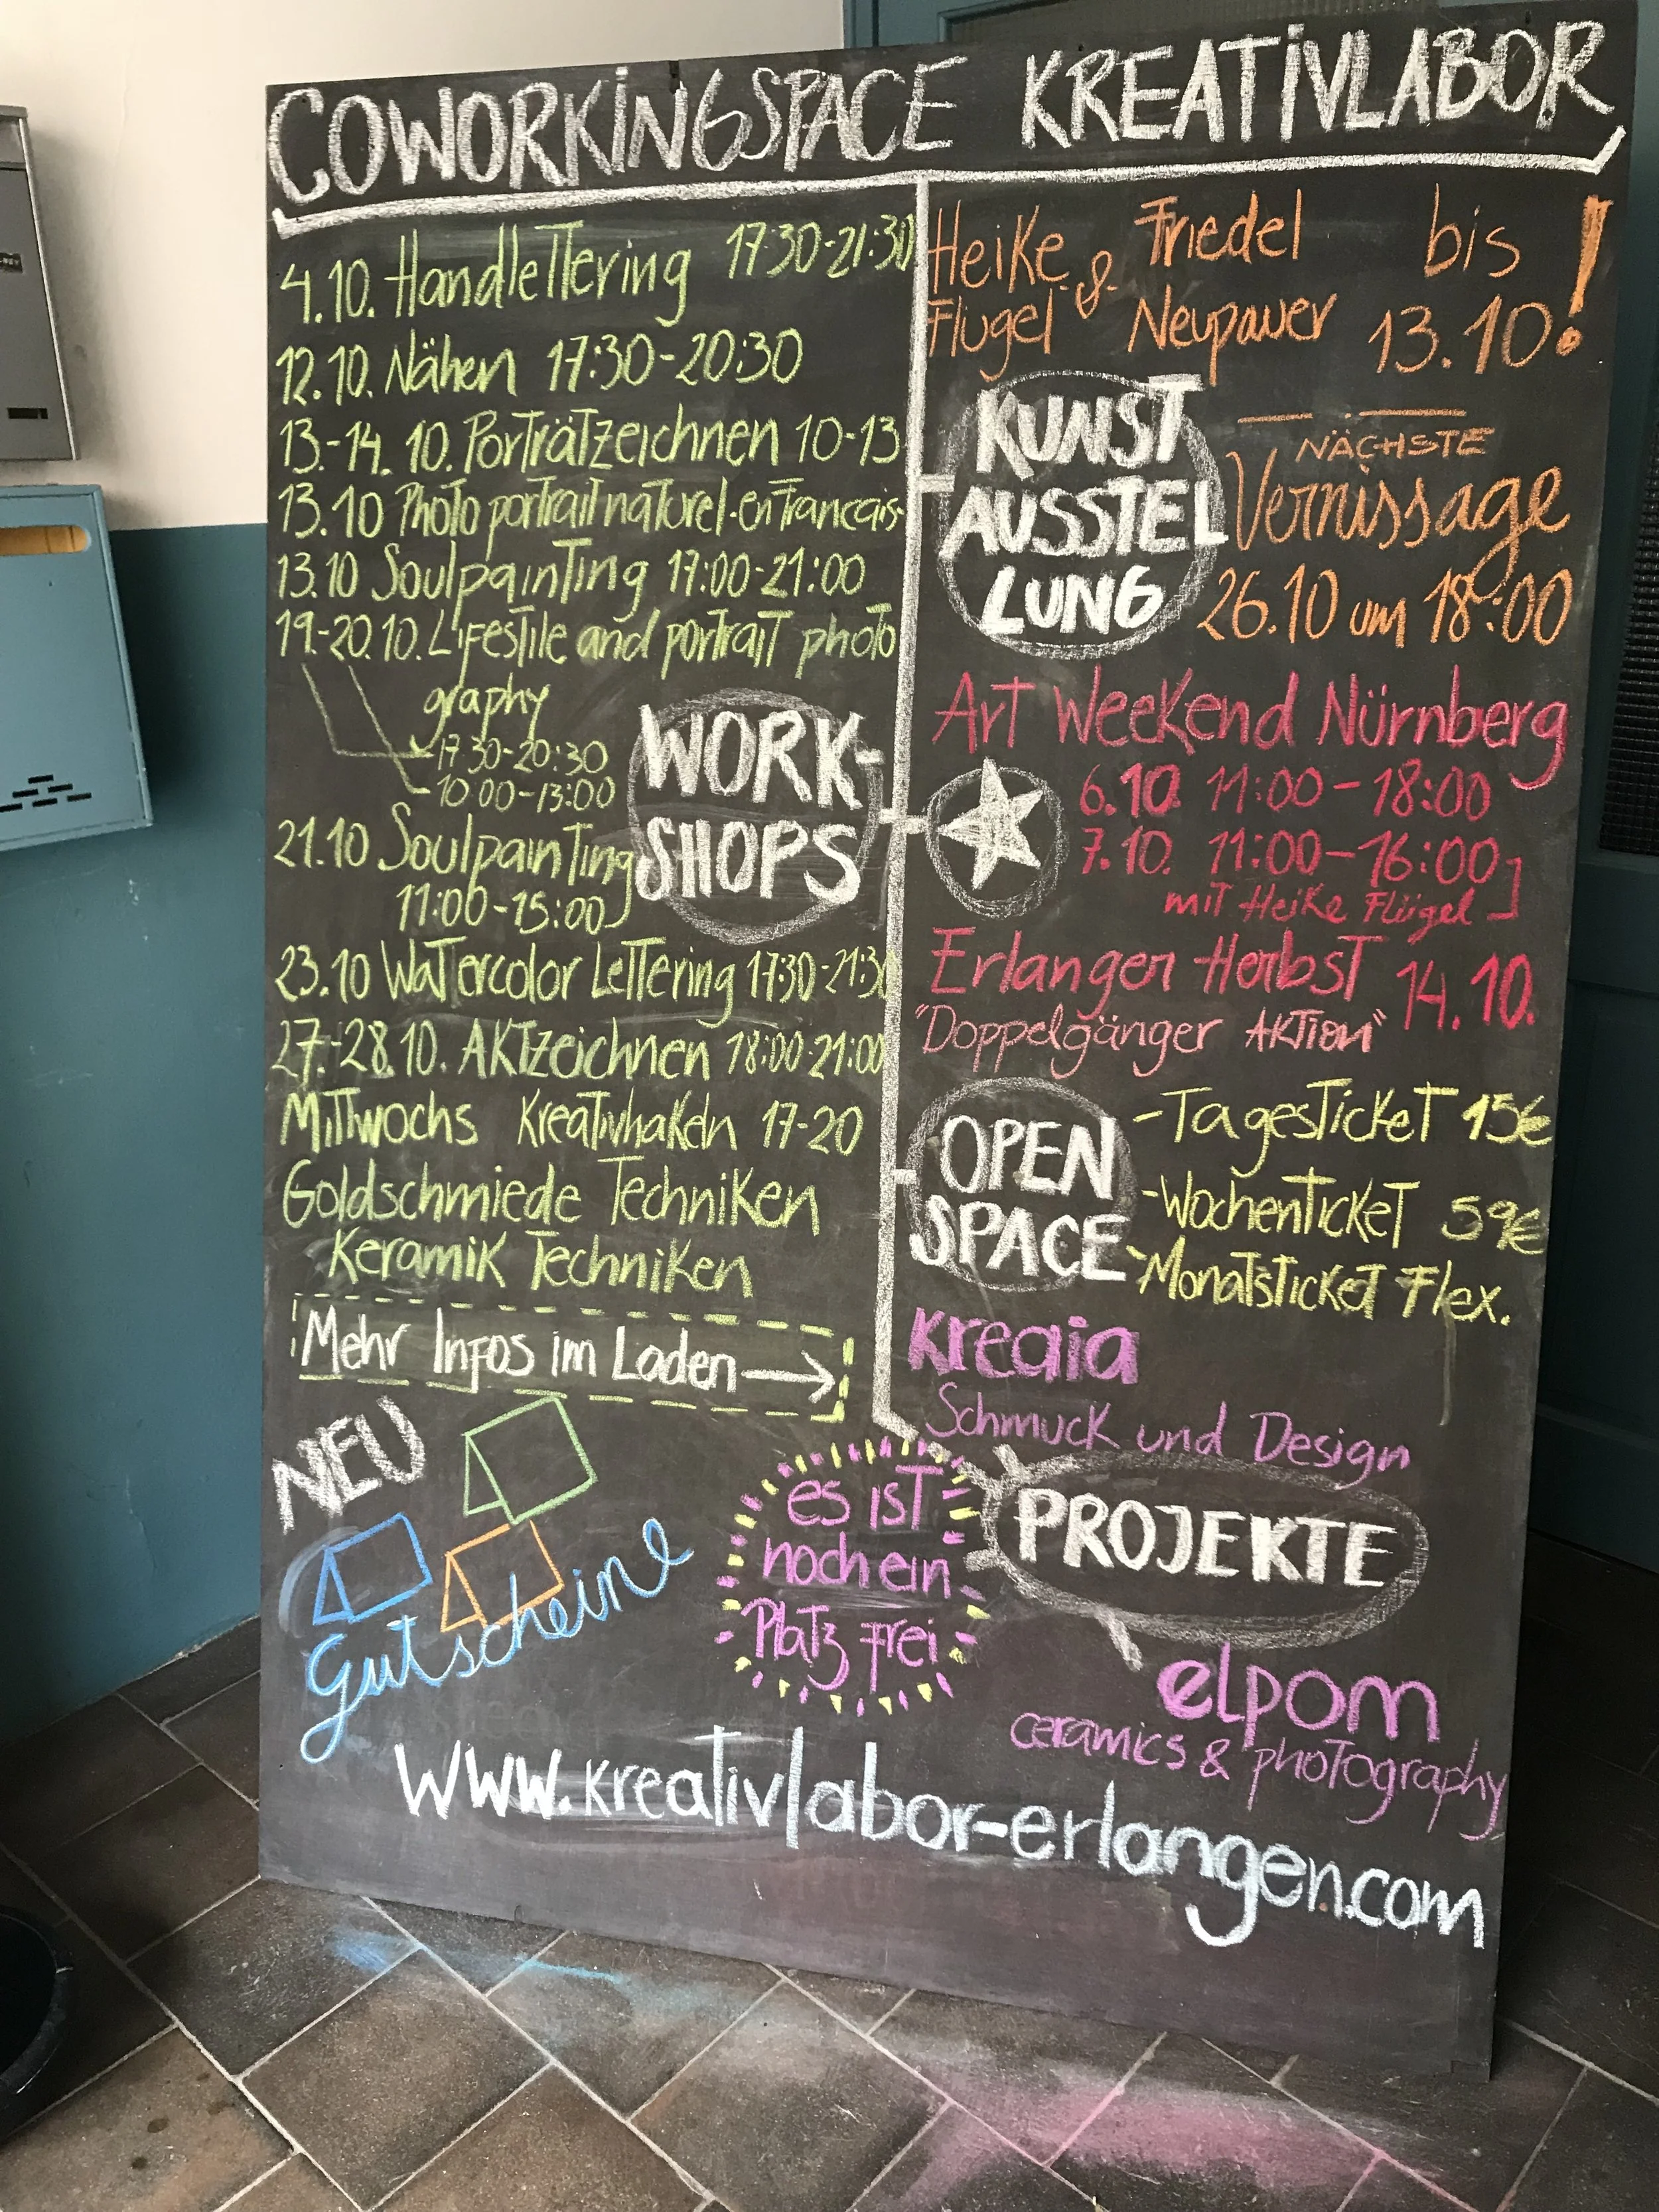 COWORKINGSPACE KREATIVLABOR
4.10. Handlettering 17:30-21:30
12.10. Nähen 17:30-20:30
13.-14.10. Porträtzeichnen 10-13
13.10 Photo portrait naturel-en francais-
13.10 Soulpainting 17:00-21:00
19.-20.10. Lifestile and portrait photo
graphy
17:30-20:30
10:00-13:00
21.10 Soulpainting
11:00-15:00
WORK-
SHOPS
23.10 Watercolor Lettering 17:30-21:30
27.-28.10. Aktzeichnen 18:00-21:00
Mittwochs Kreativhakeln 17-20
Goldschmiede Techniken
Keramik Techniken
Mehr Infos im Laden →
NEU
Gutscheine
Heike & Friedel bis
Flügel Neupauer 13.10!
KUNST
AUSSTEL
LUNG
NÄCHSTE
Vernissage
26.10 um 18:00
Art Weekend Nürnberg
6.10. 11:00-18:00
7.10. 11:00-16:00
mit Heike Flügel
Erlanger Herbst 14.10.
"Doppelgänger Aktion"
OPEN
SPACE
-Tagesticket 15€
-Wochenticket 59€
-Monatsticket Flex.
kreaia
Schmuck und Design
PROJEKTE
es ist
noch ein
Platz frei
elpom
ceramics & photography
www.kreativlabor-erlangen.com